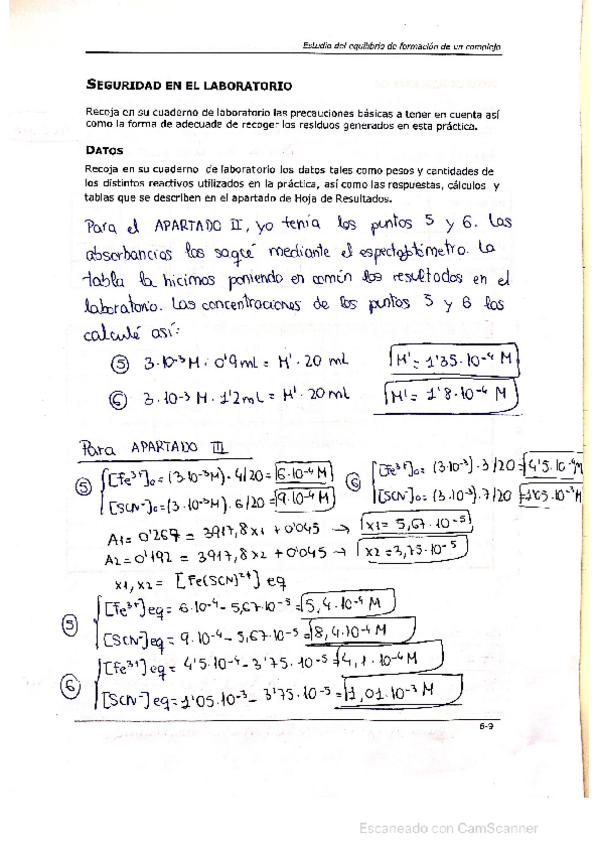 Estudio del equilibrio de formación de un complejo
SEGURIDAD EN EL LABORATORIO
Recoja en su cuaderno de laboratorio las precauciones básicas a tener en cuenta así
como la forma de adecuade de recoger los residuos generados en esta práctica.
DATOS
Recoja en su cuaderno de laboratorio los datos tales como pesos y cantidades de
los distintos reactivos utilizados en la práctica, así como las respuestas, cálculos y
tablas que se describen en el apartado de Hoja de Resultados.
Para el APARTADO II, yo tenía los puntos 5 y 6. Las
absorbancias las saqué mediante el espectofotómetro. La
tabla la hicimos poniendo en común los resultados en el
laboratorio. Las concentraciones de los puntos 5 y 6 las
calculé así:
⑤ 3·10⁻³M · 0'9mL = M' · 20 mL M' = 1'35·10⁻⁴ M
⑥ 3·10⁻³ M · 1'2mL = M' · 20mL M' = 1'8·10⁻⁴ M
Para APARTADO III
⑤ [Fe³⁺]₀ = (3·10⁻³M) · 4/20 = 6·10⁻⁴ M ⑥ [Fe³⁺]₀ = (3·10⁻³) · 3/20 = 4'5·10⁻⁴M
[SCN⁻]₀ = (3·10⁻³M) · 6/20 = 9·10⁻⁴ M [SCN⁻]₀ = (3·10⁻³) · 7/20 = 1'05·10⁻³M
A1 = 0'267 = 3917,8 x1 + 0'045 → x1 = 5,67·10⁻⁵
A2 = 0'192 = 3917,8 x2 + 0'045 → x2 = 3,75·10⁻⁵
x1, x2 = [Fe(SCN)²⁺] eq
⑤ [Fe³⁺]eq = 6·10⁻⁴ - 5,67·10⁻⁵ = 5,4·10⁻⁴ M
[SCN⁻]eq = 9·10⁻⁴ - 5,67·10⁻⁵ = 8,4·10⁻⁴ M
⑥ [Fe³⁺]eq = 4'5·10⁻⁴ - 3'75·10⁻⁵ = 4,1·10⁻⁴ M
[SCN⁻]eq = 1'05·10⁻³ - 3'75·10⁻⁵ = 1,01·10⁻³ M
6-9
Escaneado con CamScanner